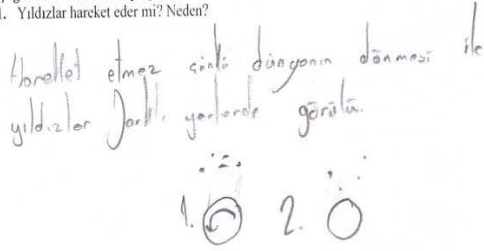 1. Yıldızlar hareket eder mi? Neden?
Hareket etmez çünkü dünyanın dönmesi ile
yıldızlar farklı yerlerde görülü.
1. 2.